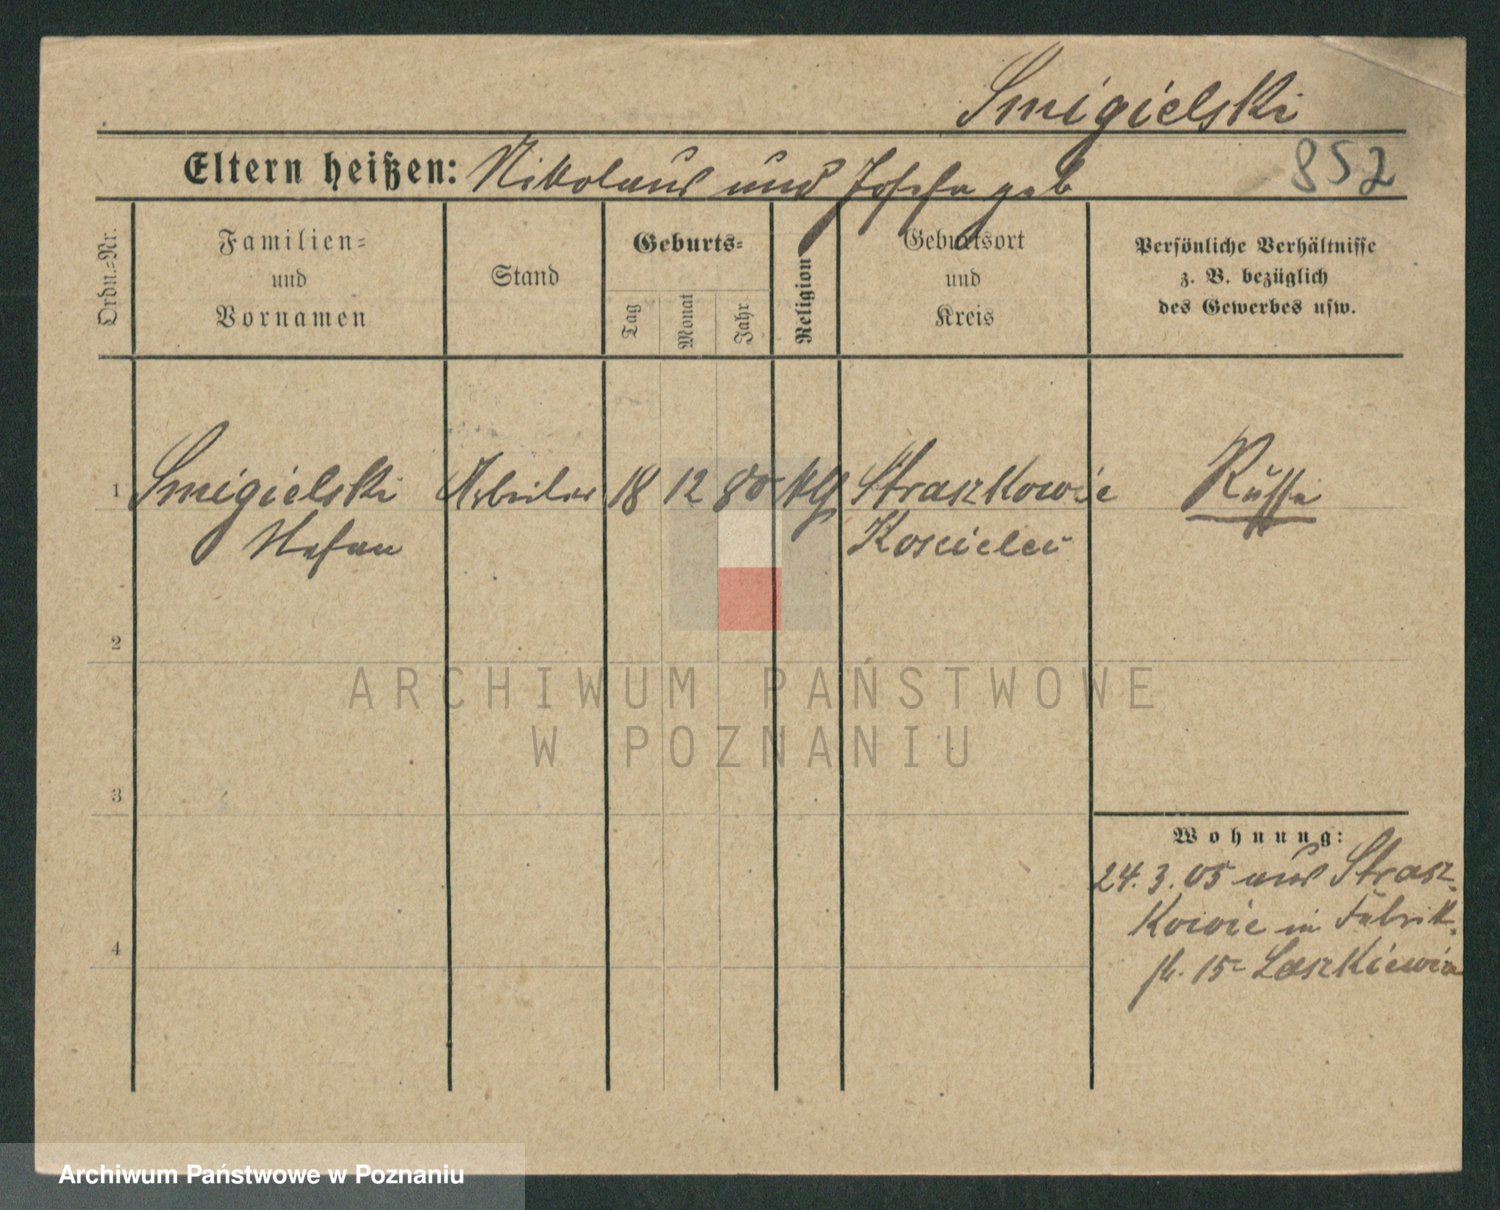 Smigielski
852
Eltern heißen: Nikolaus und Josefa geb
Ordn.=Nr.
Familien=
und
Vornamen
Stand
Geburts=
Tag
Monat
Jahr
Religion
Geburtsort
und
Kreis
Persönliche Verhältnisse
z. B. bezüglich
des Gewerbes usw.
1 Smigielski Arbeiter 18 12 80 klg Straszkowie Russe
Stefan Koscielec
2
ARCHIWUM PAŃSTWOWE
W POZNANIU
3
Wohnung:
24. 3. 05 aus Strasz-
kowie in Fabrik-
st. 15 Laszkiewicz
4
Archiwum Państwowe w Poznaniu